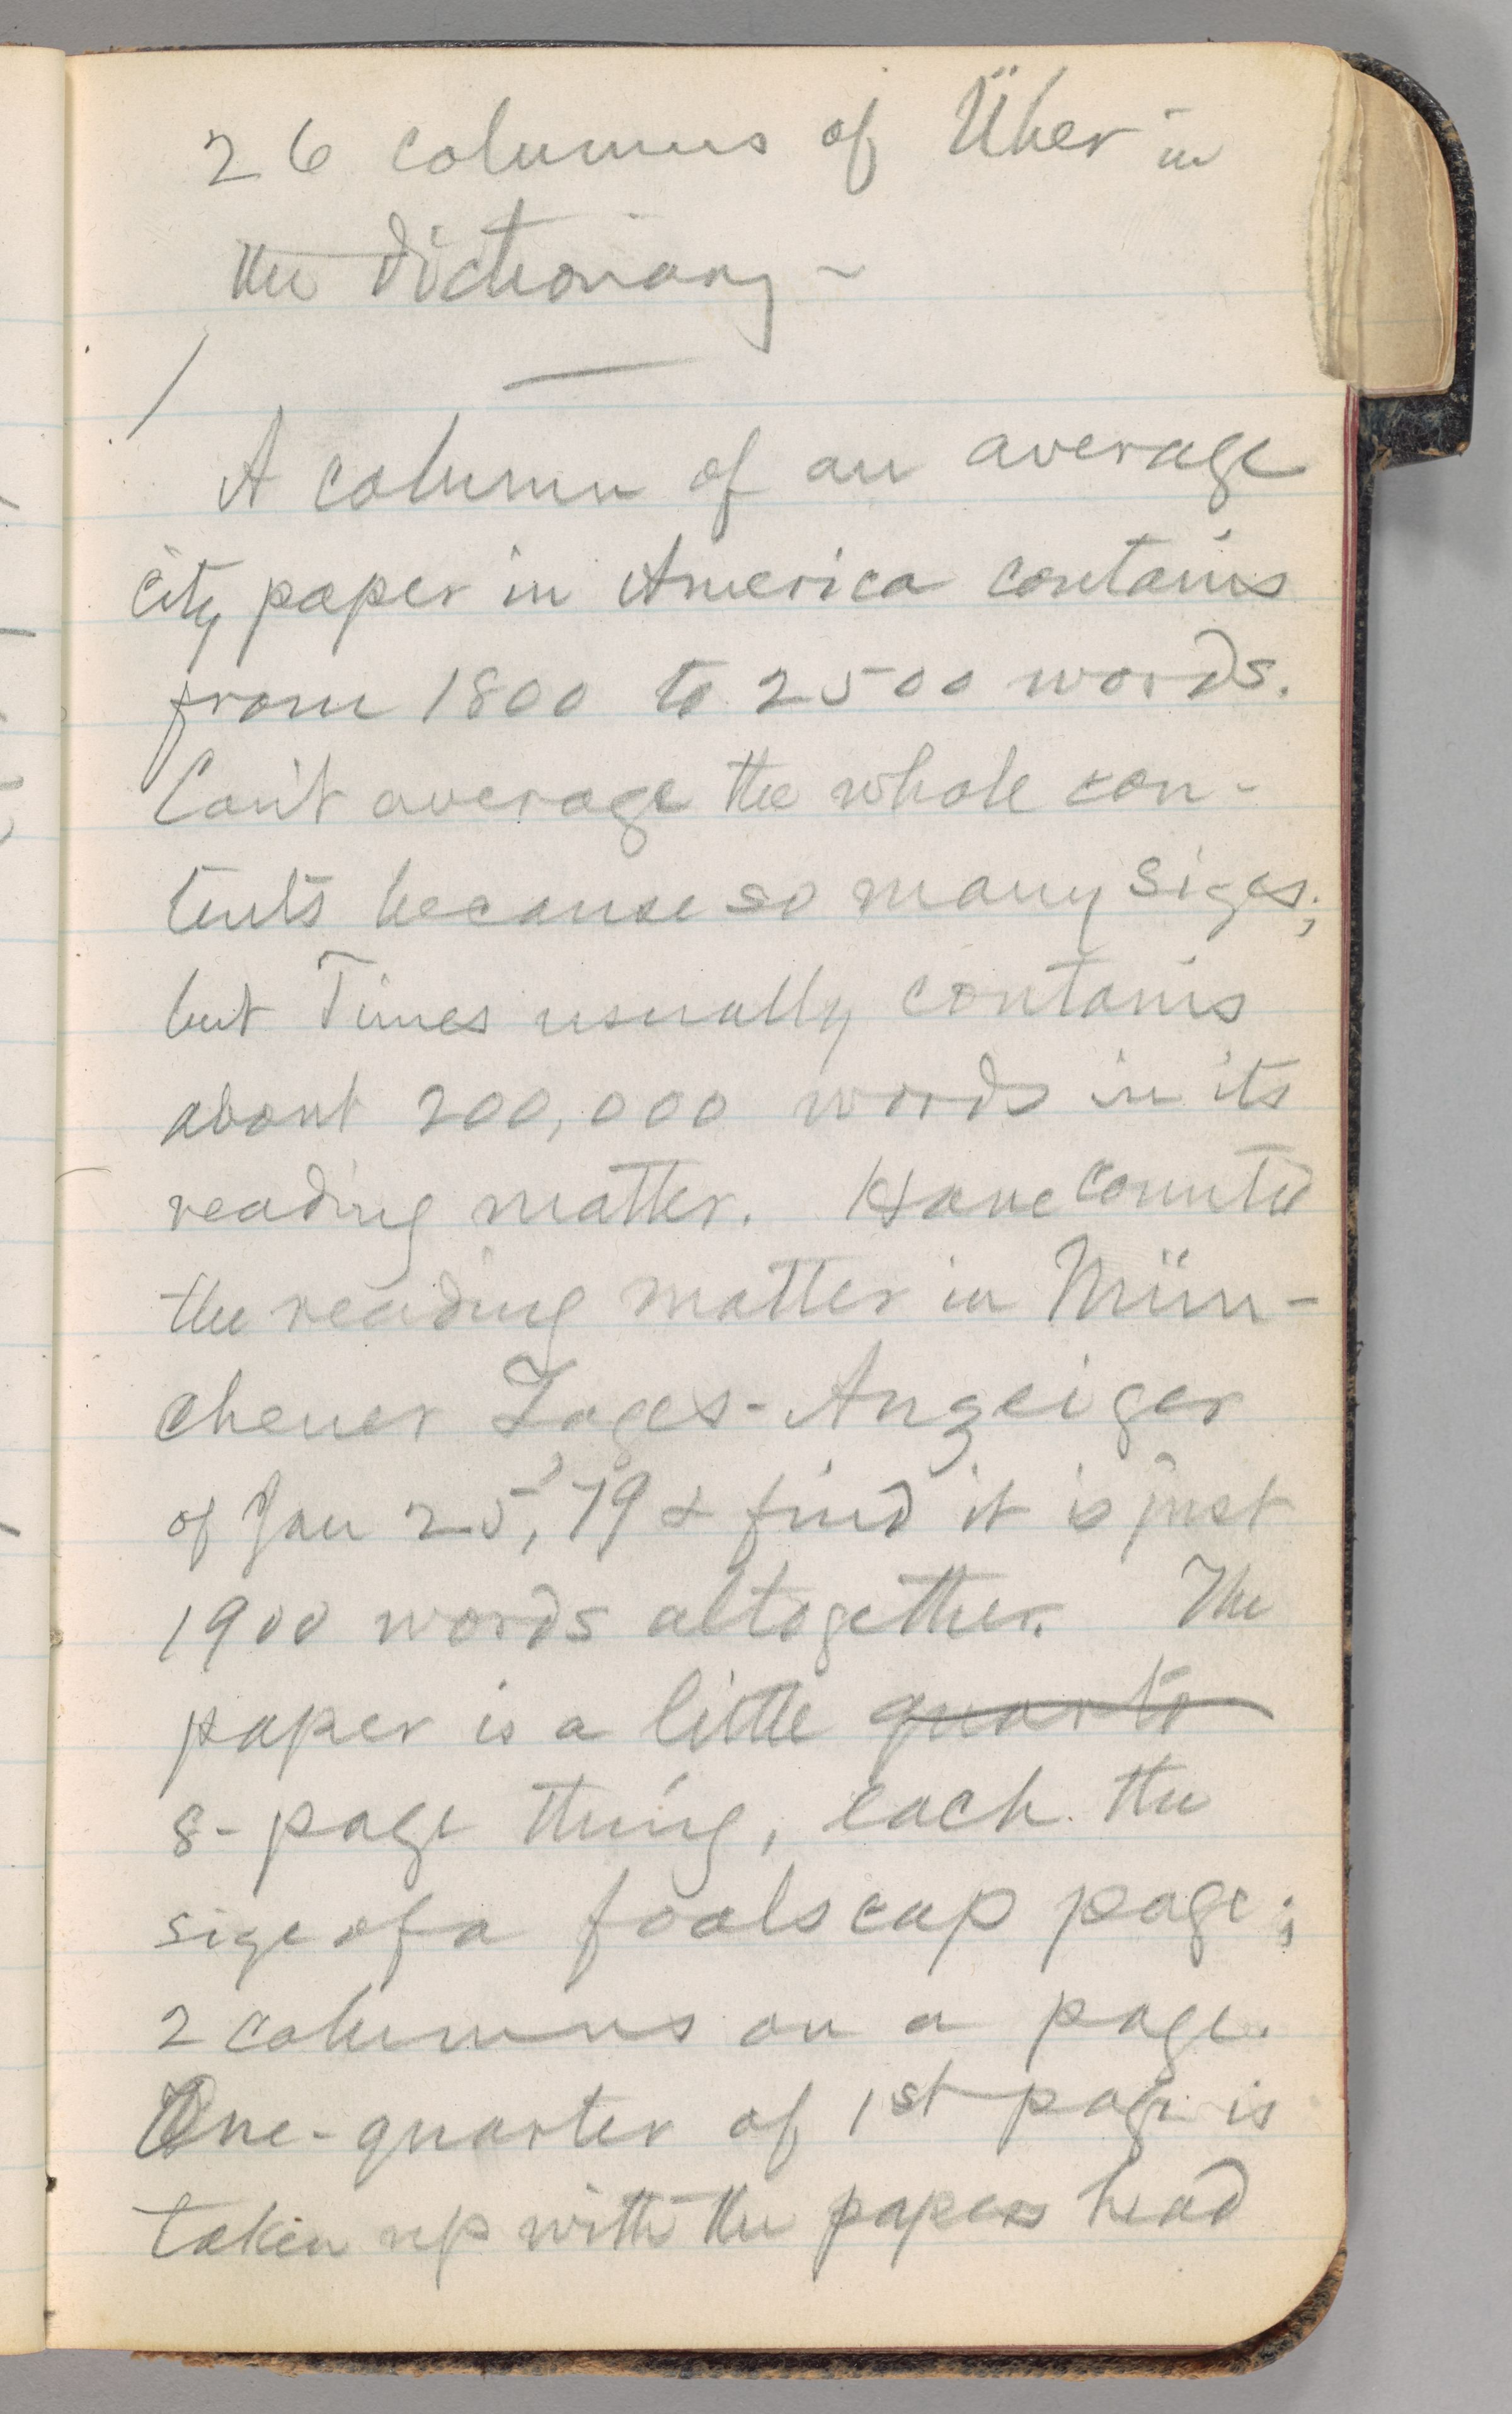 26 columns of Über in
the dictionary –
A column of an average
city paper in America contains
from 1800 to 2500 words.
Can't average the whole con-
tents because so many sizes;
but Times usually contains
about 200,000 words in its
reading matter. Have counted
the reading matter in Mün-
chener Tages-Anzeiger
of Jan 25, '79 & find it is just
1900 words altogether. The
paper is a little quarto
8-page thing, each the
size of a foolscap page;
2 columns on a page.
One-quarter of 1st page is
taken up with the papers head